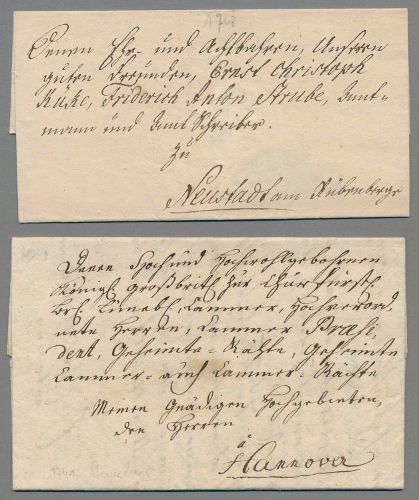 1768
Denen Ehr- und Achtbahren, Unsern
guten Freünden, Ernst Christoph
Küke, Friderich Anton Strube, Amt-
mann und Amt Schreiber.
zu
Neustadt am Rübenberge
Denen Hoch und Hochwohlgebohrnen
Königl. Großbritt. zur Churfürstl.
Br. Lüneb. Cammer, Hochverord
nete Herren, Cammer Præsi
dent, Geheimte-Räthe, Geheimte
Cammer- auch Cammer-Räthe
Meinen Gnädigen Hochgebieten,
den Herren
a
Hannover